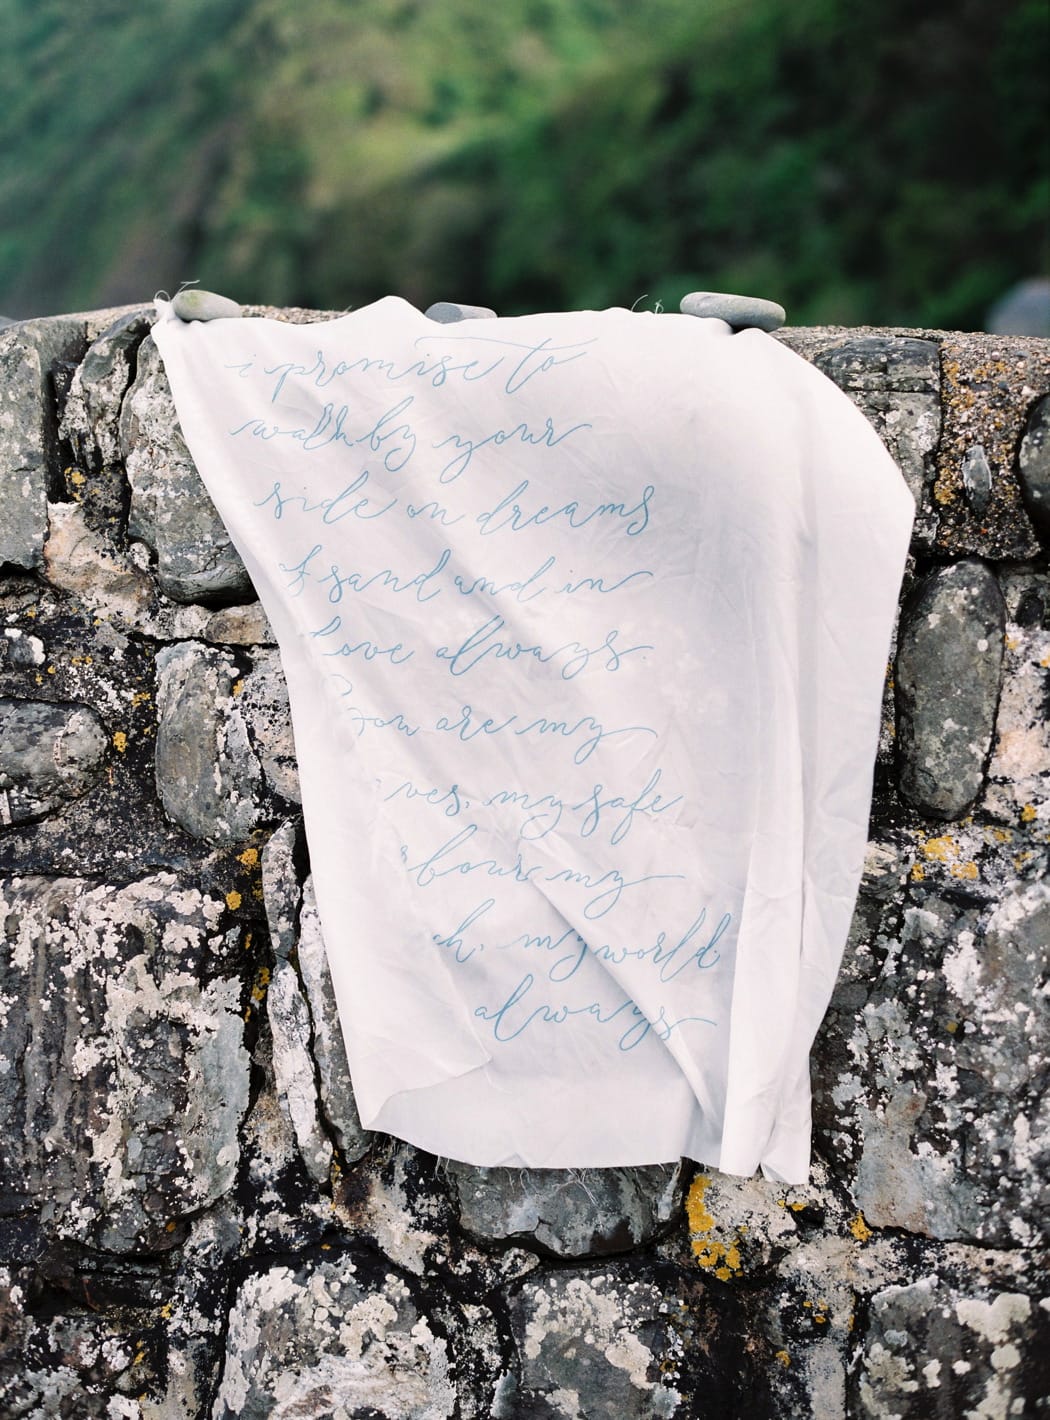 i promise to
walk by your
side on dreams
of sand and in
love always.
You are my
my safe
my
my world
always